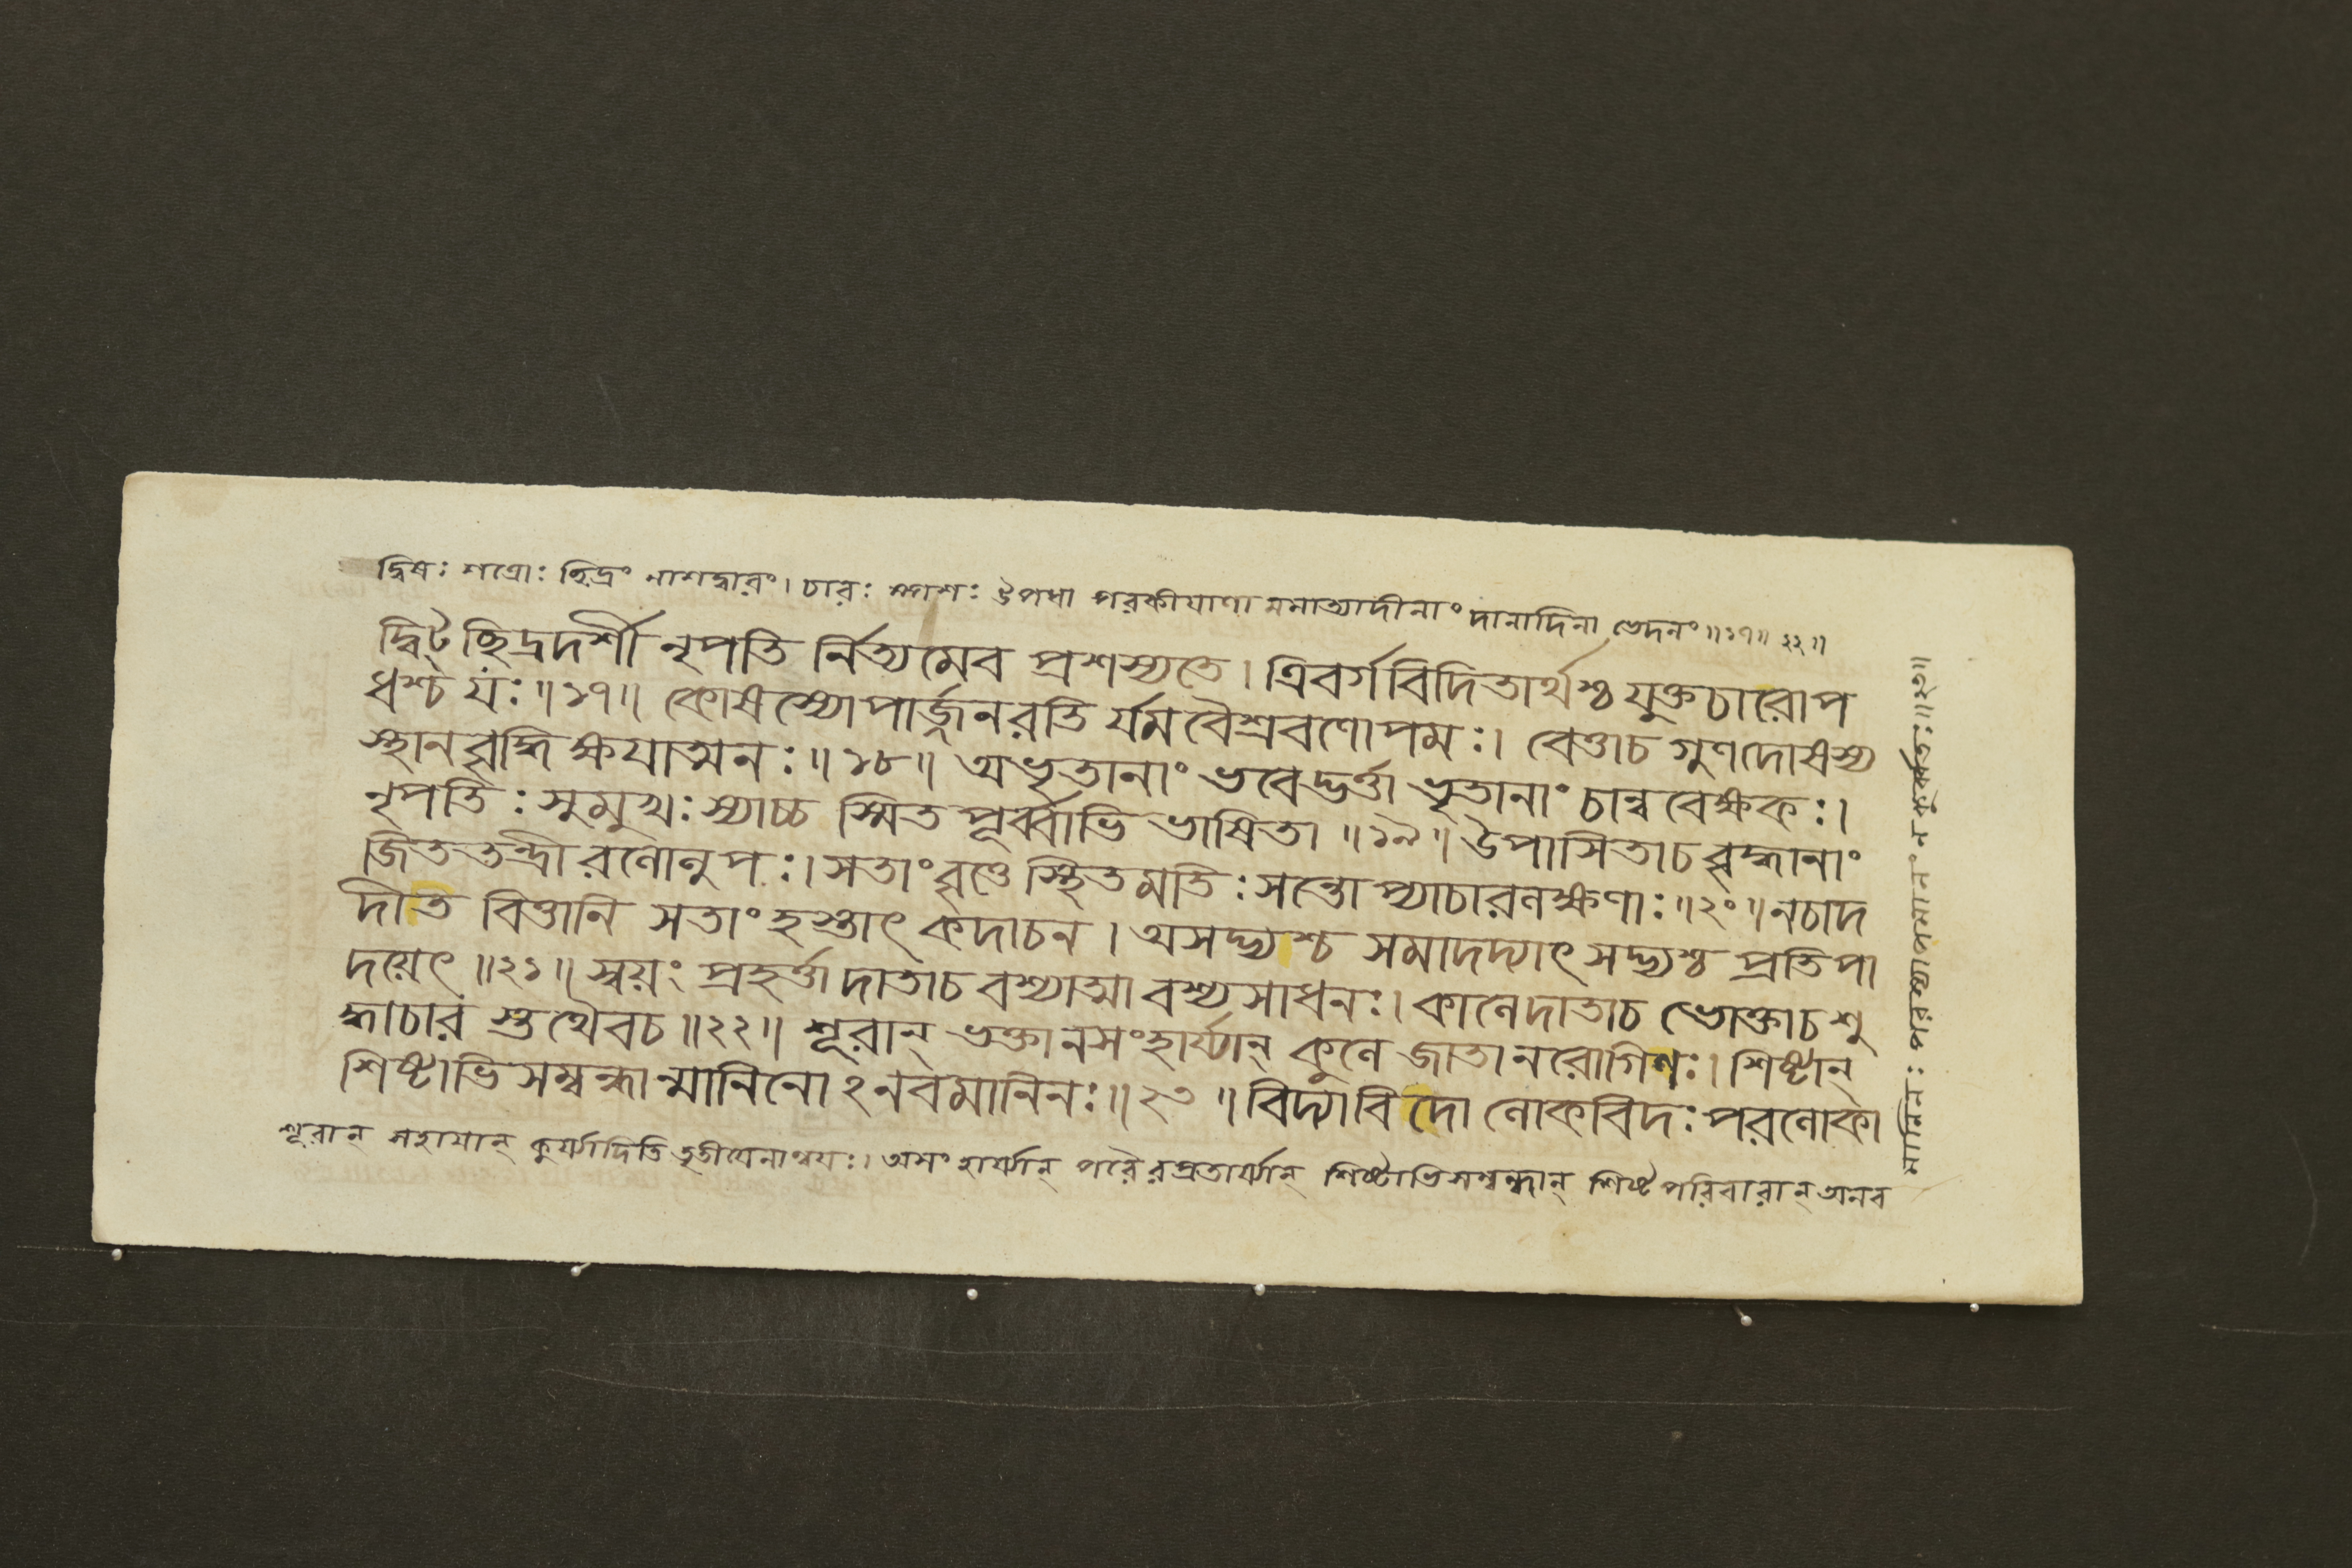 দ্বিষঃ শত্রোঃ ছিদ্রং নাশদ্বারং। চারঃ স্পশঃ উপধা পরকীয়াণা মমাত্যাদীনাং দানাদিনা ভেদনং॥১৭॥২২॥
দ্বিট্ ছিদ্রদর্শী নৃপতি র্নিত্যমেব প্রশস্যতে। ত্রিবর্গবিদিতার্থশ্চ যুক্তচারোপ
ধশ্চ যঃ॥১৭॥ কোষস্যোপার্জ্জনরতি র্যম বৈশ্রবণোপমঃ। বেত্তাচ গুণদোষস্য
স্থানবৃদ্ধি ক্ষযাত্মনঃ॥১৮॥ অভৃতানাং ভবেদ্ভর্ত্তা ভৃতানাং চান্ববেক্ষকঃ।
নৃপতিঃ সুমুখঃ স্যাচ্চ স্মিত পূর্ব্বাভি ভাষিতা॥১৯॥ উপাসিতাচ বৃদ্ধানাং
জিততন্দ্রী রলোলুপঃ। সতাং বৃত্তে স্থিতমতিঃ সন্তো প্যাচারলক্ষণাঃ॥২০॥ নচাদ
দীত বিত্তানি সতাং হস্তাৎ কদাচন। অসদ্ভ্যশ্চ সমাদদ্যাৎ সদ্ভ্যশ্চ প্রতিপা
দয়েৎ॥২১॥ স্বয়ং প্রহর্ত্তা দাতাচ বশ্যাত্মা বশ্যসাধনঃ। কালেদাতাচ ভোক্তাচ শু
দ্ধাচার স্তথৈবচ॥২২॥ শূরান্ ভক্তানসংহার্য্যান্ কুলে জাতানরোগিণঃ। শিষ্টান্
শিষ্টাভিসম্বন্ধান্মানিনোঽনবমানিনঃ॥২৩॥ বিদ্যাবিদো লোকবিদঃ পরলোকা
শূরান্ সহাযান্ কুর্য্যাদিতি তৃতীযেনান্বযঃ। অসংহার্য্যান্ পরৈরপ্রতার্য্যান্ শিষ্টাভিসম্বন্ধান্ শিষ্টপরিবারান্ অনব
মানিনঃ পরস্যাপমানং ন কুর্ব্বতঃ॥২৩॥